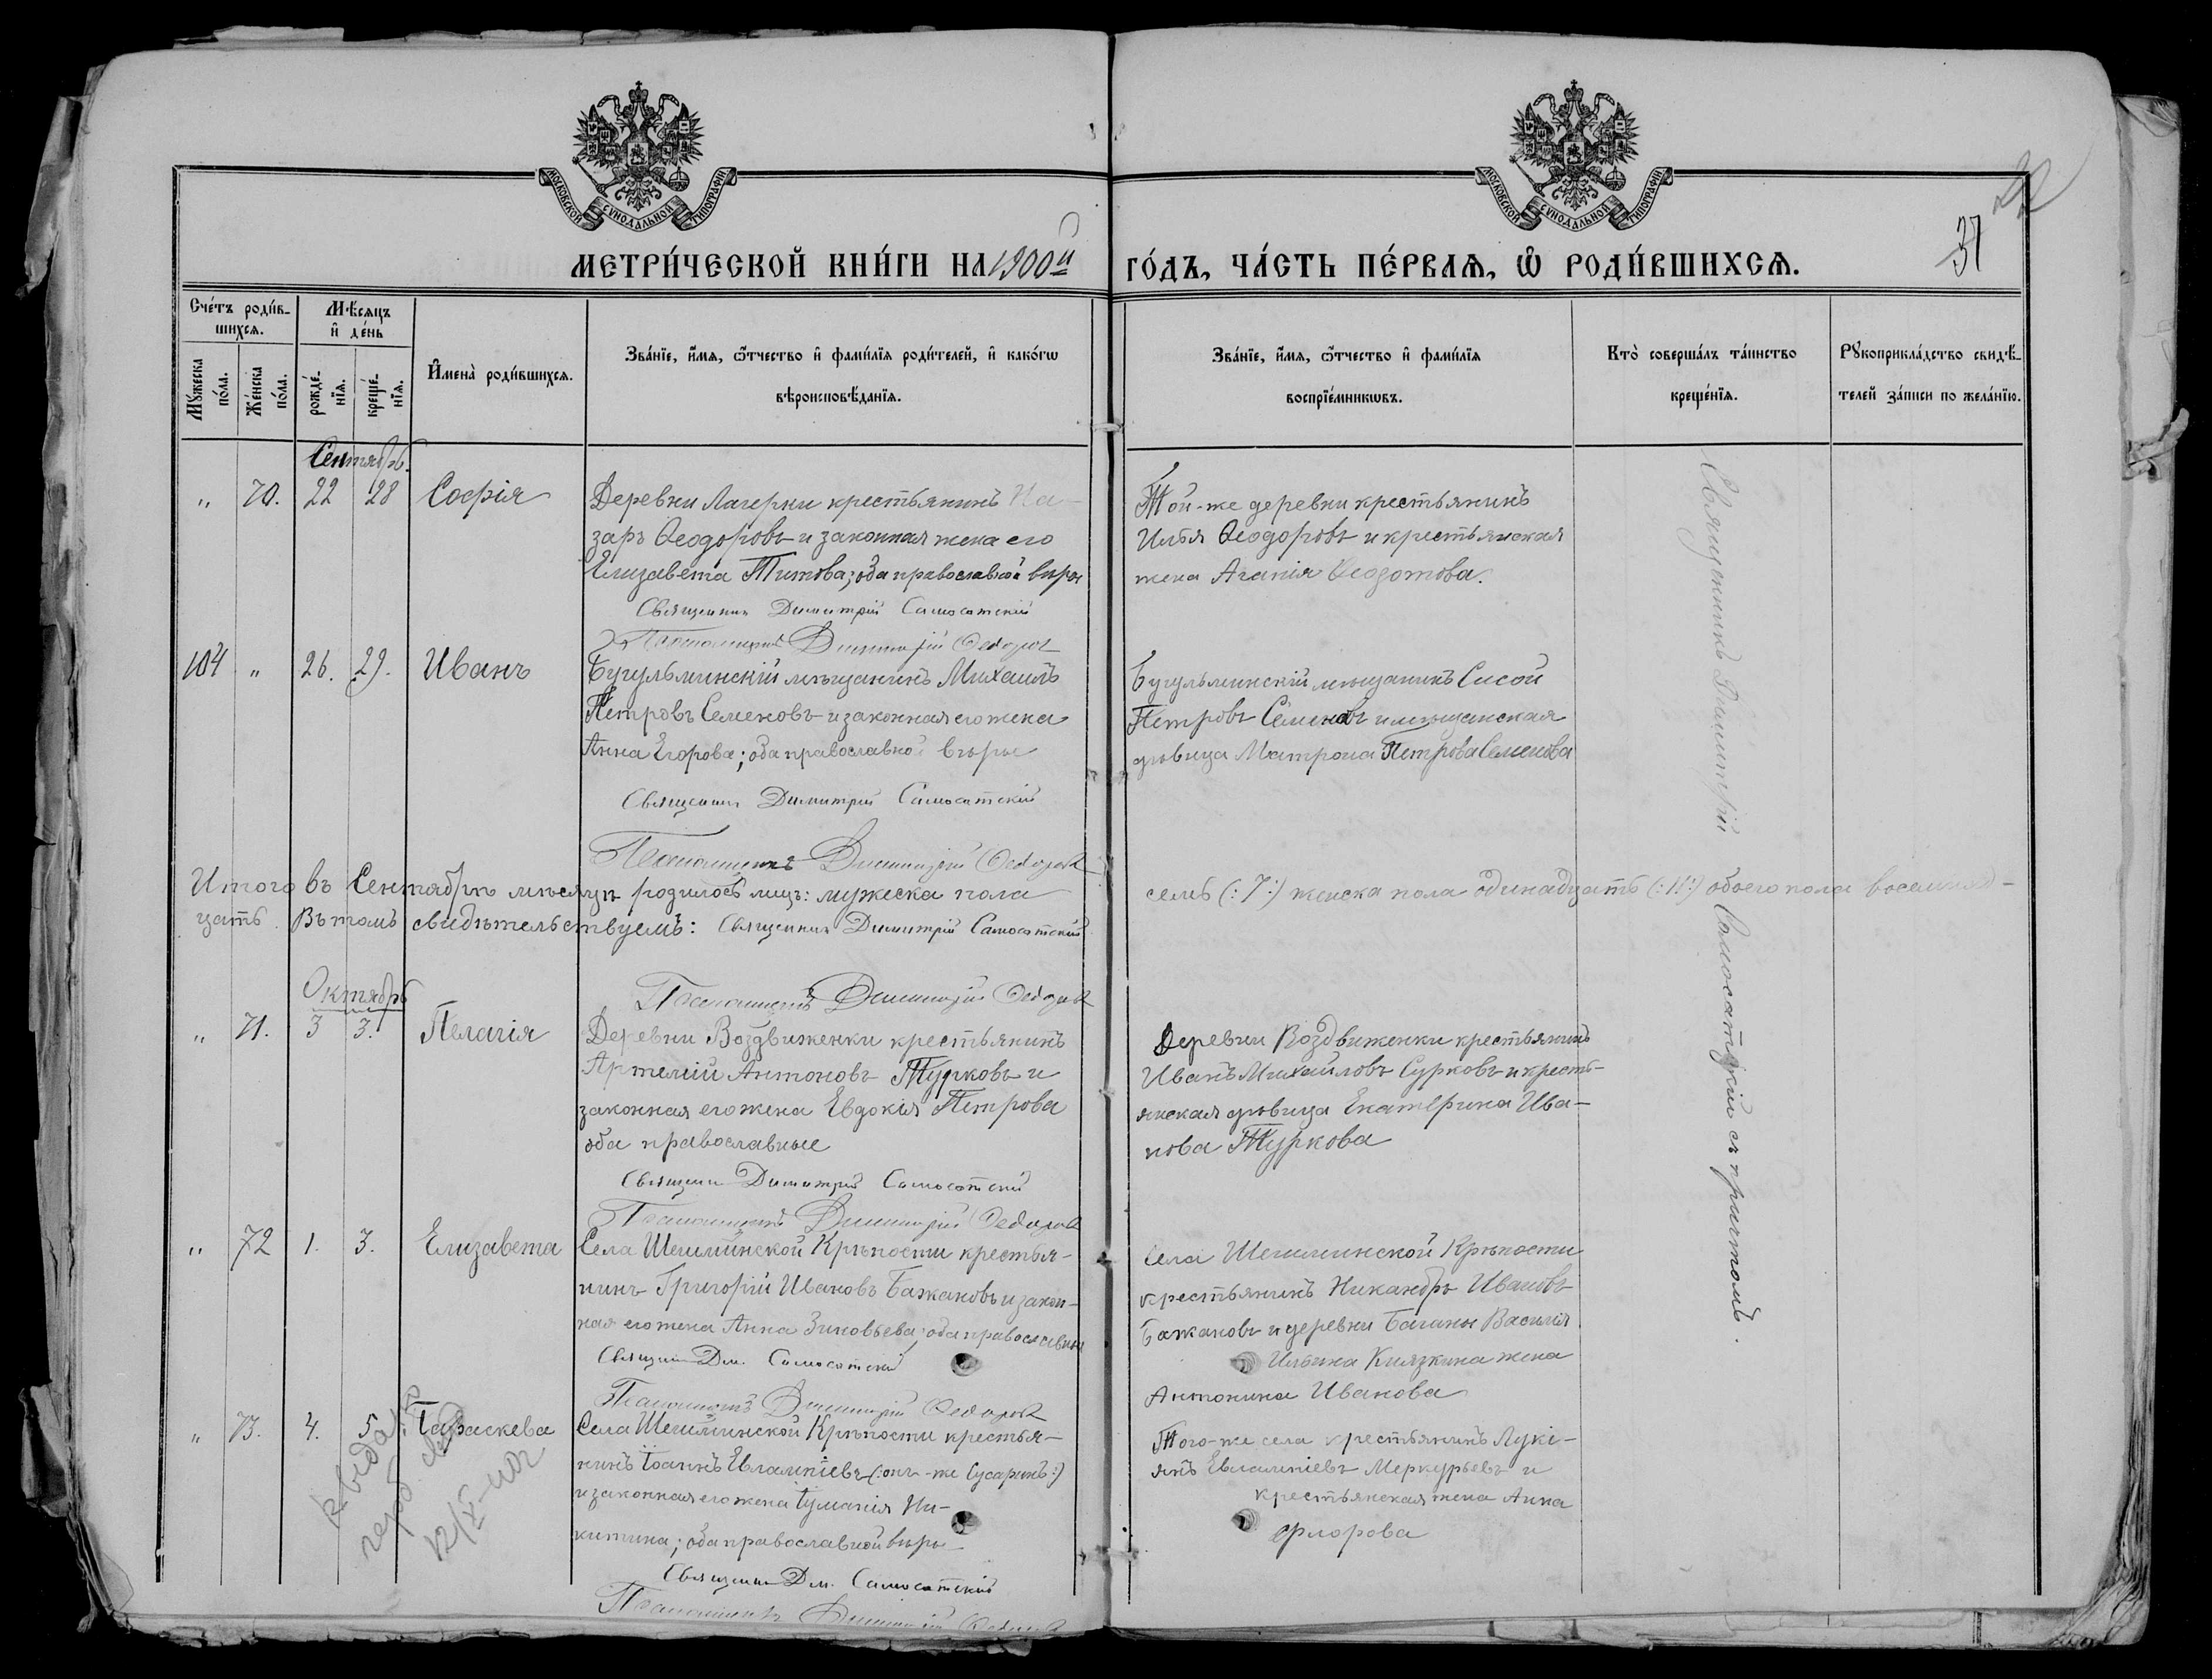 МОСКОВСКОЙ СУНОДАЛЬНОЙ ТИПОГРАФІИ
МОСКОВСКОЙ СУНОДАЛЬНОЙ ТИПОГРАФІИ
37
МЕТРИ́ЧЕСКОЙ КНИ́ГИ НА 1900й ГО́ДЪ, ЧА́СТЬ ПЕ́РВАѦ, Ѡ҆ РОДИ́ВШИХСѦ.
Сче́тъ роди́в-
шихсѧ.
Мѣ́сѧцъ
и҆ де́нь
Мꙋ́жеска
по́ла.
Же́нска
по́ла.
рожде́-
нїѧ.
креще́-
нїѧ.
И҆мена̀ роди́вшихсѧ.
Зва́нїе, и҆́мѧ, ѻ҆́тчество и҆ фами́лїѧ роди́телей, и҆ како́гѡ
вѣроисповѣ́данїѧ.
Зва́нїе, и҆́мѧ, ѻ҆́тчество и҆ фами́лїѧ
воспрїе́мникѡвъ.
Кто̀ соверша́лъ та́инство
креще́нїѧ.
Рꙋкоприкла́дство свидѣ́-
телей за́писи по жела́нїю.
Сентябрь.
" 70. 22 28 Софія
Деревни Лагерки крестьянинъ На-
заръ Ѳеодоровъ и законная жена его
Елизавета Титова; оба православной вѣры
Священникъ Димитрій Самосатскій
Псаломщикъ Димитрій Ѳедоровъ
Той-же деревни крестьянинъ
Илья Ѳеодоровъ и крестьянская
жена Агапія Ѳеодотова.
104 " 26. 29. Иванъ
Бугульминскій мѣщанинъ Михаилъ
Петровъ Семеновъ и законная его жена
Анна Егорова; оба православной вѣры
Священникъ Димитрій Самосатскій
Псаломщикъ Димитрій Ѳедоровъ
Бугульминскій мѣщанинъ Сисой
Петровъ Семеновъ и мѣщанская
дѣвица Матрона Петрова Семенова
Итого въ Сентябрѣ мѣсяцѣ родилось лицъ: мужеска пола семь (:7:) женска пола одинадцать (:11:) обоего пола восемнад-
цать. Въ томъ свидѣтельствуемъ: Священникъ Димитрій Самосатскій
Псаломщикъ Димитрій Ѳедоровъ
Октябрь
" 71. 3 3. Пелагія
Деревни Воздвиженки крестьянинъ
Артемій Антоновъ Турковъ и
законная его жена Евдокія Петрова
оба православные
Священникъ Димитрій Самосатскій
Псаломщикъ Димитрій Ѳедоровъ
Деревни Воздвиженки крестьянинъ
Иванъ Михайловъ Сурковъ и кресть-
янская дѣвица Екатерина Ива-
нова Туркова
" 72 1. 3. Елизавета
Села Шешминской Крѣпости крестья-
нинъ Григорій Ивановъ Бажановъ и закон-
ная его жена Анна Зиновьева; оба православн
Священникъ Дм. Самосатскій
Псаломщикъ Димитрій Ѳедоровъ
Села Шешминской Крѣпости
крестьянинъ Никандръ Ивановъ
Бажановъ и деревни Баганы Василія
Ильина Князкина жена
Антонина Иванова
" 73. 4. 5 Параскева
Села Шешминской Крѣпости крестья-
нинъ Іоаннъ Евлампіевъ (:онъ-же Сусаринъ:)
и законная его жена Іуманія Ни-
китина; оба православной вѣры
Священникъ Дм. Самосатскій
Псаломщикъ Димитрій Ѳедоровъ
Того-же села крестьянинъ Лукі-
янъ Евлампіевъ Меркурьевъ и
крестьянская жена Анна
Флорова
Священникъ Димитрій Самосатскій съ причтомъ.